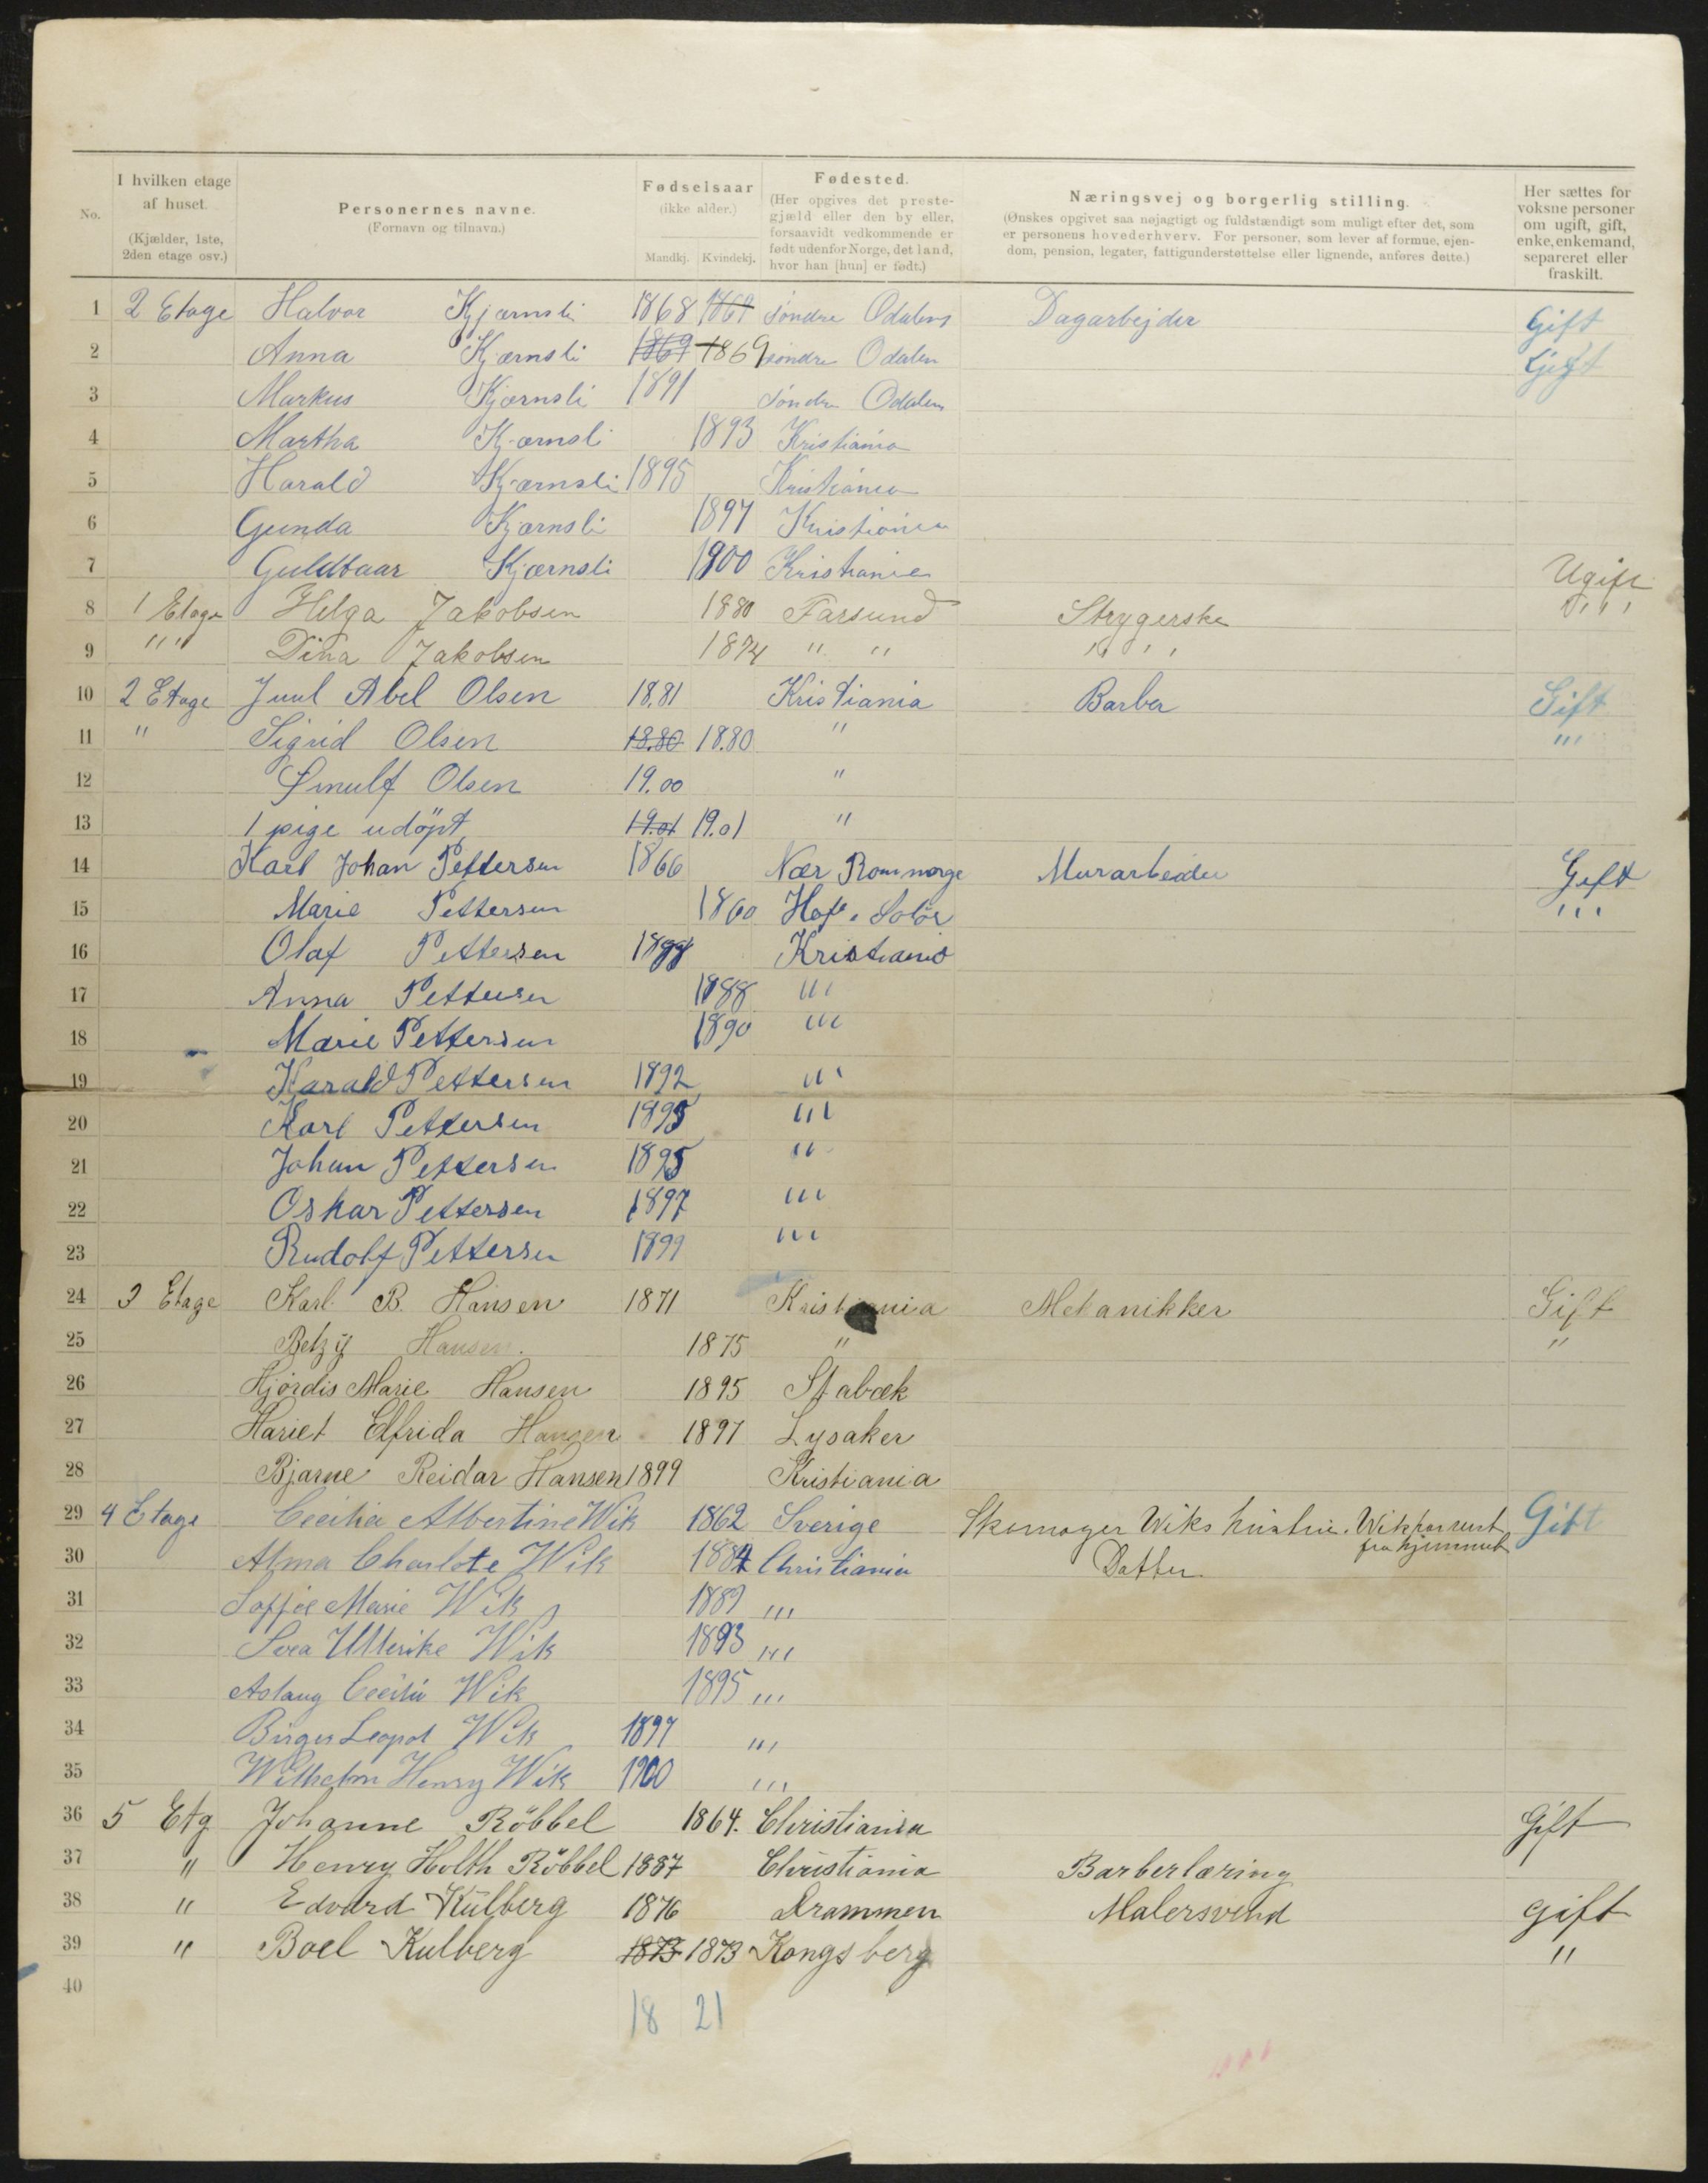 No.
I hvilken etage
af huset.
(Kjælder, 1ste,
2den etage osv.)
Personernes navne.
(Fornavn og tilnavn.)
Fødselsaar
(ikke alder.)
Mandkj. Kvindekj.
Fødested.
(Her opgives det preste-
gjæld eller den by eller,
forsaavidt vedkommende er
født udenfor Norge, det land,
hvor han [hun] er født.)
Næringsvej og borgerlig stilling.
(Ønskes opgivet saa nøjagtigt og fuldstændigt som muligt efter det, som
er personens hovederhverv. For personer, som lever af formue, ejen-
dom, pension, legater, fattigunderstøttelse eller lignende, anføres dette.)
Her sættes for
voksne personer
om ugift, gift,
enke, enkemand,
separeret eller
fraskilt.
1 2 Etage Halvor Kjærnsli 1868 1869 søndre Odalens Dagarbejder Gift
2 Anna Kjærnsli 1869 1869 søndre Odalen Gift
3 Markus Kjærnsli 1891 søndre Odalen
4 Martha Kjærnsli 1893 Kristiania
5 Harald Kjærnsli 1895 Kristiania
6 Gunda Kjærnsli 1897 Kristiania
7 Kjærnsli 1900 Kristiania
8 1 Etage Helga Jakobsen 1880 Farsund Strygerske Ugift
9 " " Dina Jakobsen 1874 " " " " " "
10 2 Etage Juul Abel Olsen 18.81 Kristiania Barber Gift
11 " Sigrid Olsen 18.80 18.80 " "
12 Ørnulf Olsen 19.00 "
13 1 pige udöpt 19.01 19.01 "
14 Karl Johan Pettersen 1866 Nær Murarbeider Gift
15 Marie Pettersen 1860 Hof. Solör " "
16 Olaf Pettersen Kristiania
17 Anna Pettersen 1888 " "
18 Marie Pettersen 1890 " "
19 Harald Pettersen 1892 " "
20 Karl Pettersen 1895 " "
21 Johan Pettersen 1895 " "
22 Oskar Pettersen 1897 " "
23 Rudolf Pettersen 1899 " "
24 3 Etage Karl B. Hansen 1871 Kristiania Mekanikker Gift
25 Betzy Hansen. 1875 " "
26 Hjørdis Marie Hansen 1895 Stabæk
27 Hariet Elfrida Hansen 1897 Lysaker
28 Bjarne Reidar Hansen 1899 Kristiania
29 4 Etage Cecilia Albertine Wik 1862 Sverige Skomager Wiks hustru. Wik forreist Gift
fra hjemmet
30 Alma Charlote Wik 1884 Christiania Datter
31 Soffie Marie Wik 1889 " "
32 Svea Ullerike Wik 1893 " "
33 Aslaug Cecilie Wik 1895 " "
34 Birger Leopol Wik 1897 " "
35 Wilhelm Henry Wik 1900 " "
36 5 Etg Johanne Röbbel 1864. Christiania Gift
37 " Henry Holth Röbbel 1887 Christiania Barberlæring
38 " Edvard Kulberg 1876 Drammen Malersvend gift
39 " Boel Kulberg 1873 1873 Kongsberg "
40
18 21